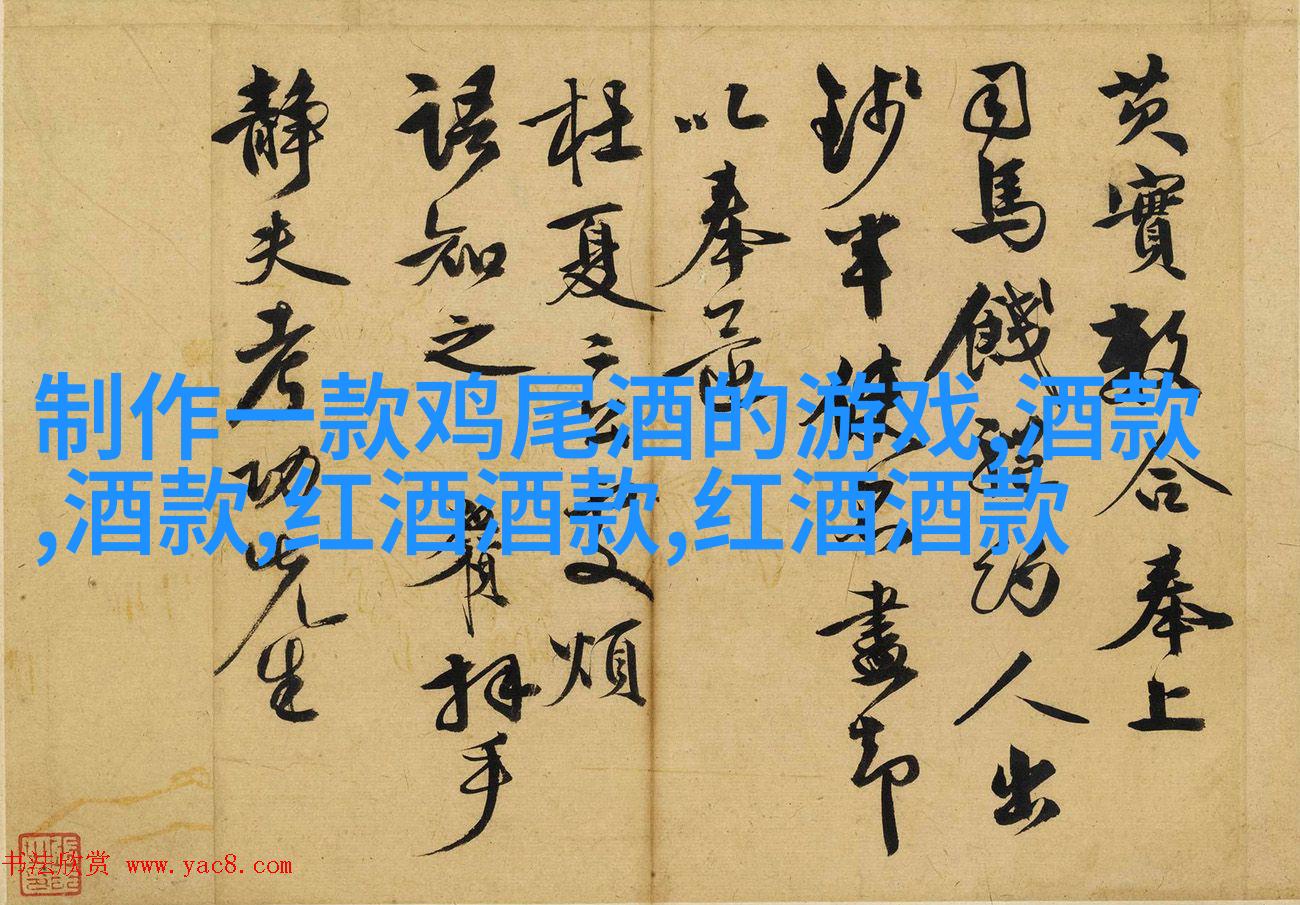 芡實數合奉上
司馬人出
半盡却
以奉
枉夏二煩
語知之拜手
靜夫考功先生
制作一款鸡尾酒的游戏,酒款
,酒款,红酒酒款,红酒酒款
书法欣赏 www.yac8.com